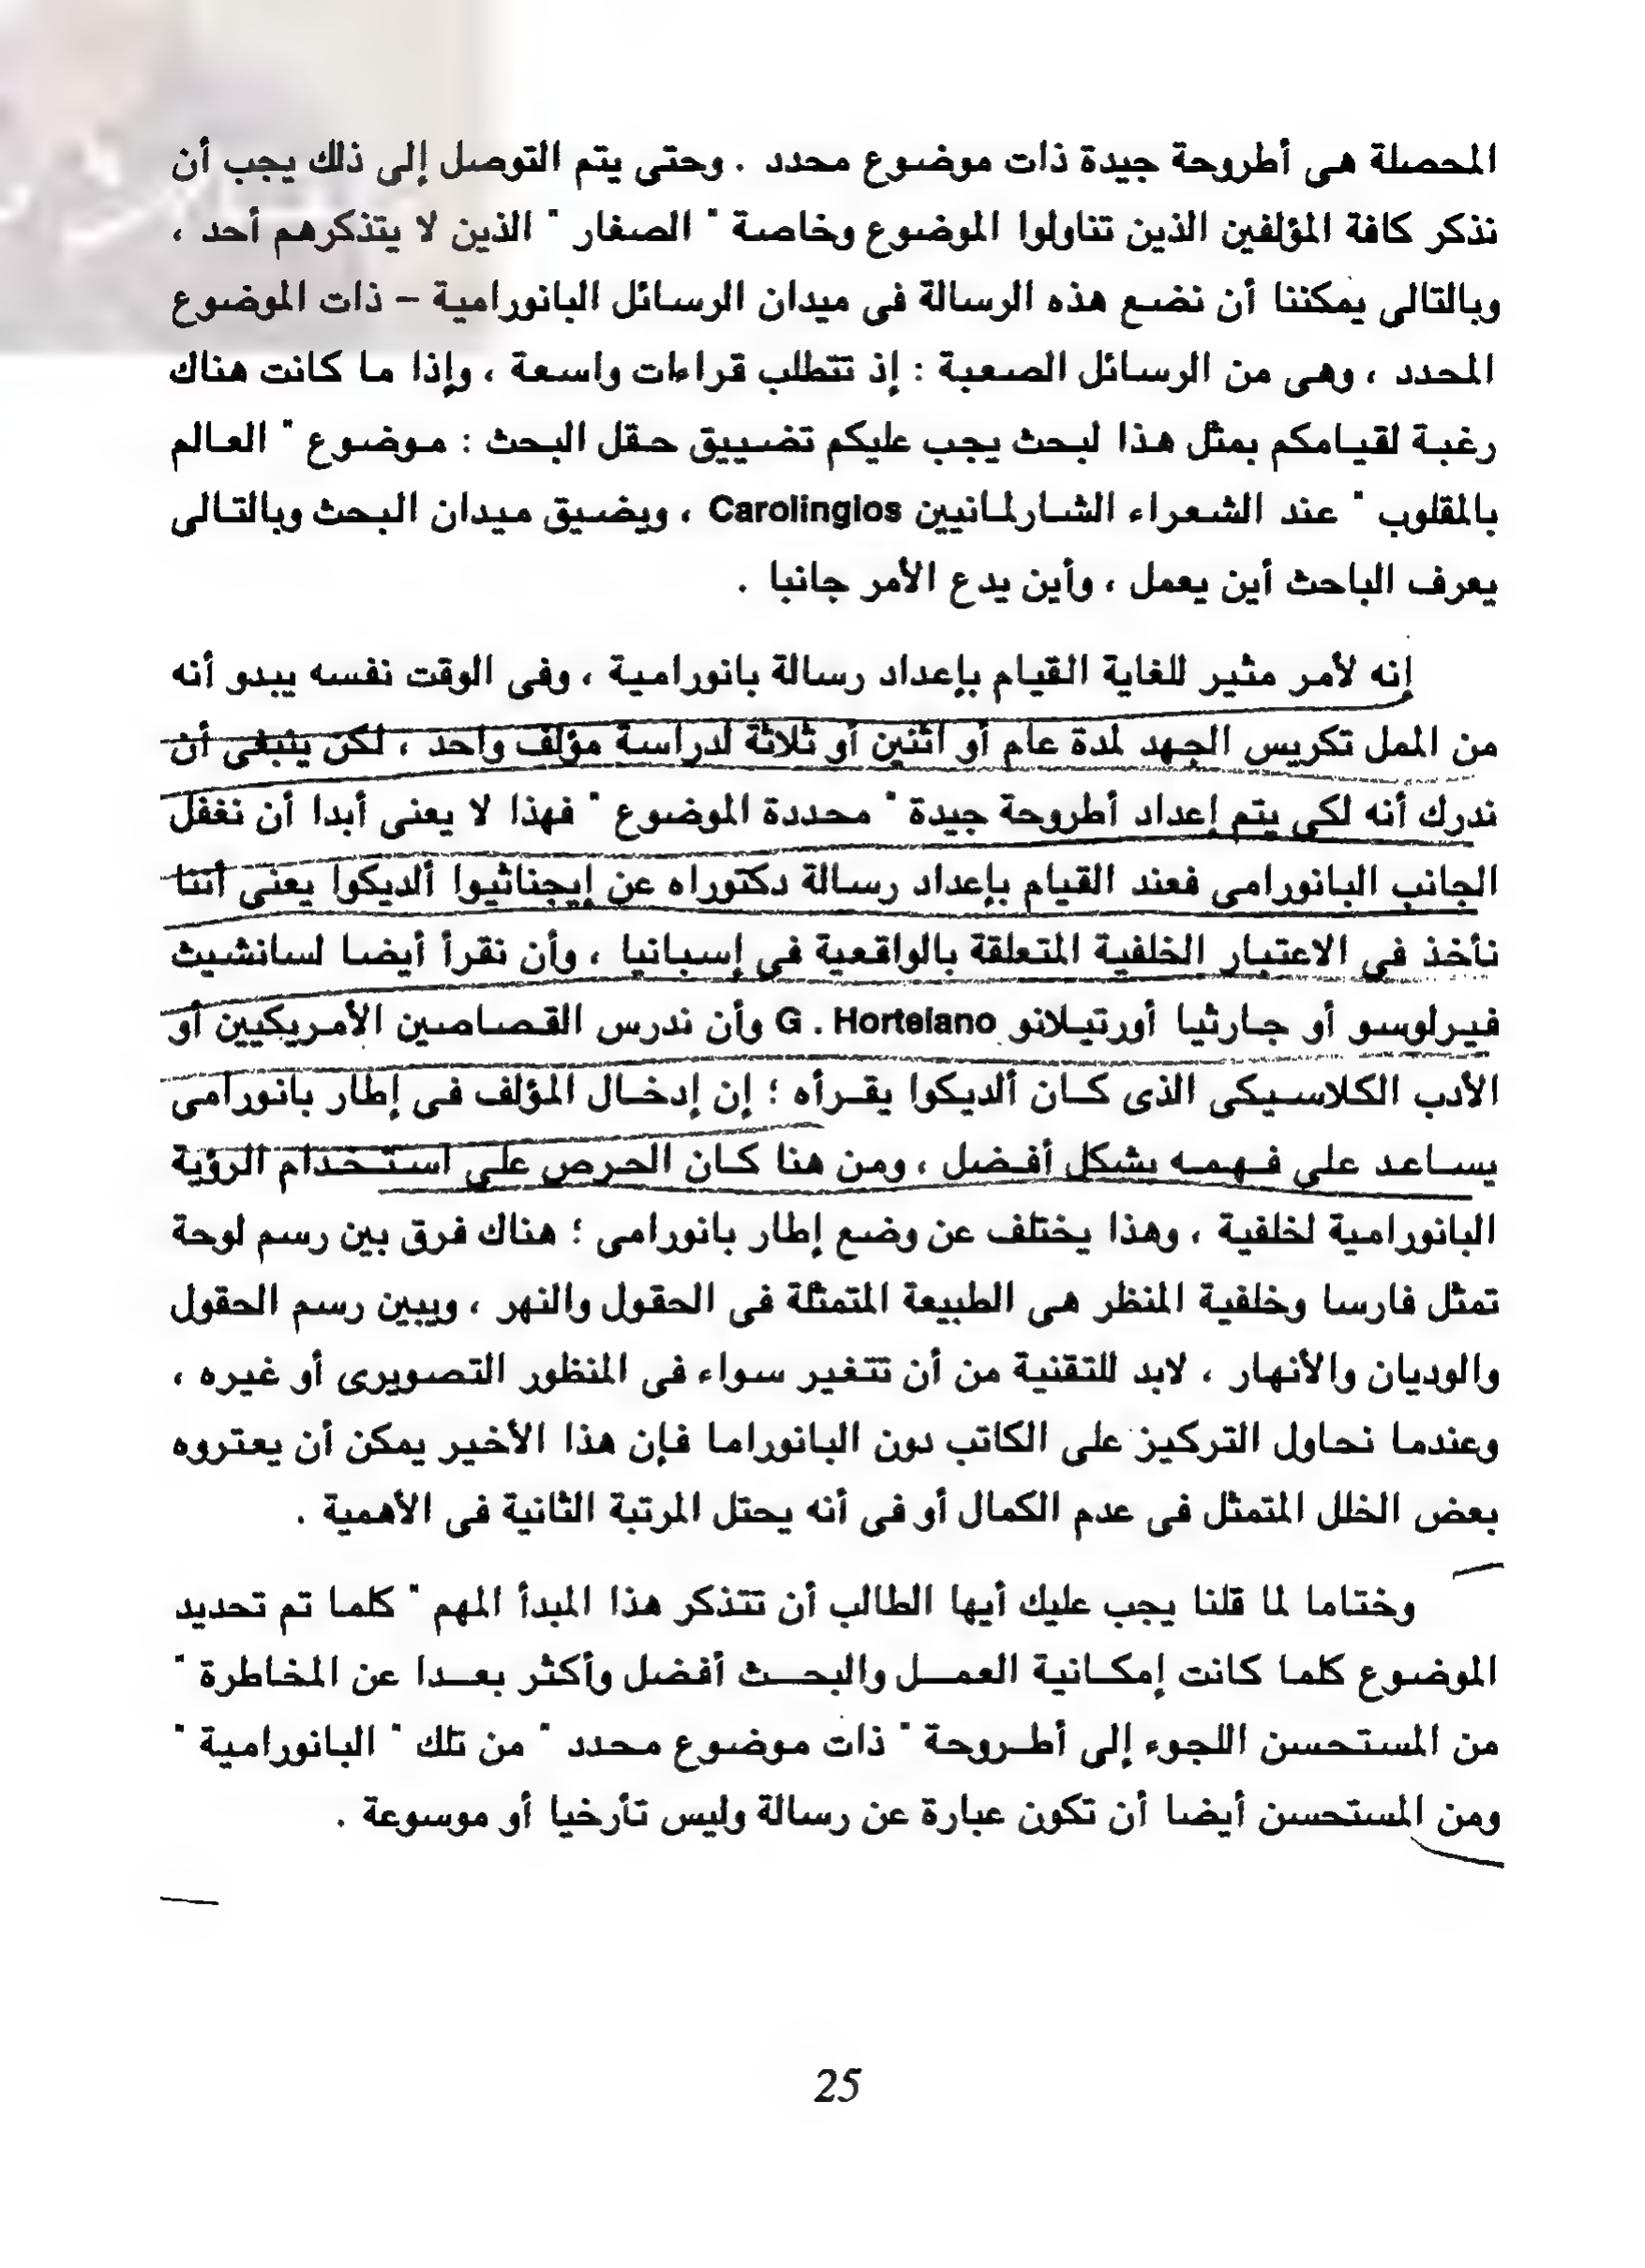 المحصلة هى أطروحة جيدة ذات موضوع محدد . وحتى يتم التوصل إلى ذلك يجب أن
نذكر كافة المؤلفين الذين تناولوا الموضوع وخاصة " الصغار " الذين لا يتذكرهم أحد ،
وبالتالى يمكننا أن نضع هذه الرسالة فى ميدان الرسائل البانورامية – ذات الموضوع
المحدد ، وهى من الرسائل الصعبة : إذ تتطلب قراءات واسعة ، وإذا ما كانت هناك
رغبة لقيامكم بمثل هذا لبحث يجب عليكم تضييق حقل البحث : موضوع " العالم
بالمقلوب " عند الشعراء الشارلمانيين Carolinglos ، ويضيق ميدان البحث وبالتالى
يعرف الباحث أين يعمل ، وأين يدع الأمر جانبا .
إنه لأمر مثير للغاية القيام بإعداد رسالة بانورامية ، وفى الوقت نفسه يبدو أنه
من الممل تكريس الجهد لمدة عام أو اثنين أو ثلاثة لدراسة مؤلف واحد ، لكن ينبغى أن
ندرك أنه لكى يتم إعداد أطروحة جيدة " محددة الموضوع " فهذا لا يعنى أبدا أن نغفل
الجانب البانورامى فعند القيام بإعداد رسالة دكتوراه عن إيجناثيوا ألديكوا يعنى أننا
نأخذ فى الاعتبار الخلفية المتعلقة بالواقعية فى إسبانيا ، وأن نقرأ أيضا لسانشيث
فيرلوسو أو جارثيا أورتيلانو G . Hortelano وأن ندرس القصاصين الأمريكيين أو
الأدب الكلاسيكى الذى كان ألديكوا يقرأه ؛ إن إدخال المؤلف فى إطار بانورامى
يساعد على فهمه بشكل أفضل ، ومن هنا كان الحرص على استخدام الرؤية
البانورامية لخلفية ، وهذا يختلف عن وضع إطار بانورامى ؛ هناك فرق بين رسم لوحة
تمثل فارسا وخلفية المنظر هى الطبيعة المتمثلة فى الحقول والنهر ، ويبين رسم الحقول
والوديان والأنهار ، لابد للتقنية من أن تتغير سواء فى المنظور التصويرى أو غيره ،
وعندما نحاول التركيز على الكاتب دون البانوراما فإن هذا الأخير يمكن أن يعتروه
بعض الخلل المتمثل فى عدم الكمال أو فى أنه يحتل المرتبة الثانية فى الأهمية .
وختاما لما قلنا يجب عليك أيها الطالب أن تتذكر هذا المبدأ المهم " كلما تم تحديد
الموضوع كلما كانت إمكانية العمل والبحث أفضل وأكثر بعدا عن المخاطرة "
من المستحسن اللجوء إلى أطروحة " ذات موضوع محدد " من تلك " البانورامية "
ومن المستحسن أيضا أن تكون عبارة عن رسالة وليس تأرخيا أو موسوعة .
25